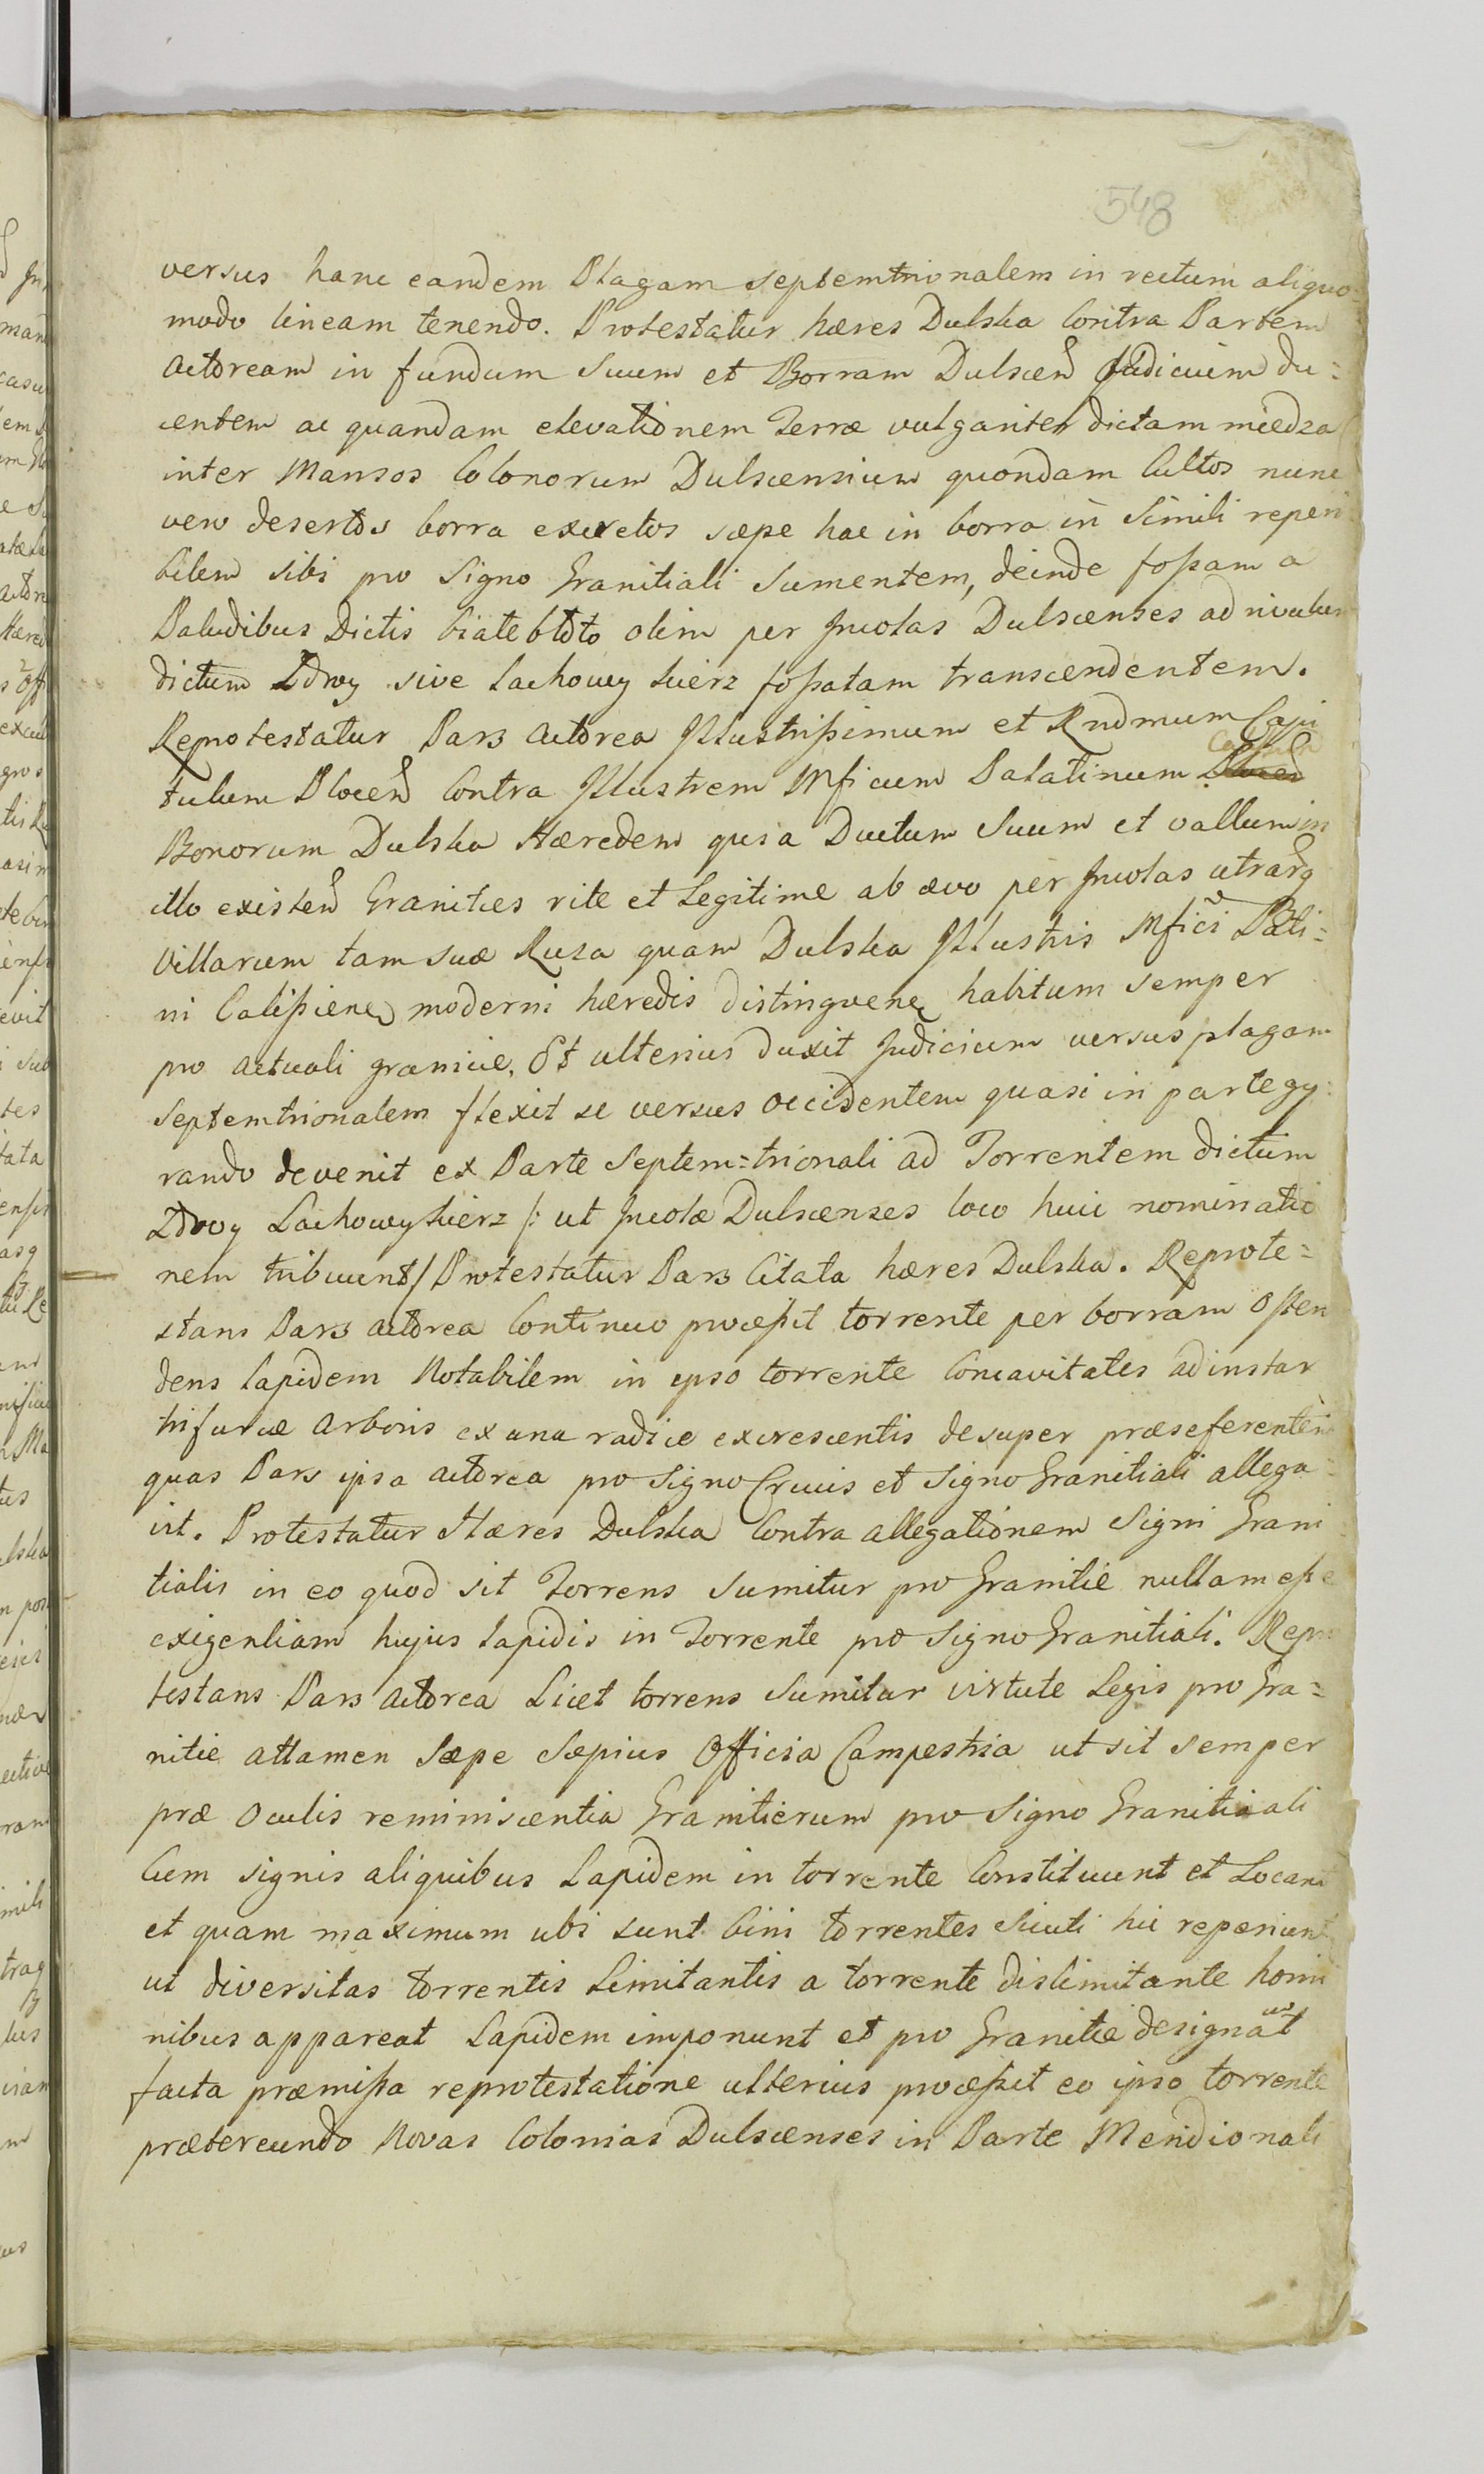 548
versus hanc eandem Plagam septemtrionalem in rectum aliquo=
modo lineam tenendo. Protestatur hæres Dulska Contra Partem
Actoream in fundum Suum et Borram Dulscen Judicium du=
centem ac quandam elevationem Terræ vulgariter dictam miedza
inter Mansos Colonorum Dulscensium quondam Cultos nunc
vero desertos borra excretos sæpe hac in borra in Simili reperi
bilem sibi pro Signo Granitiali Sumentem, deinde foßam a
Paludibus Dictis białe błoto olim per Incolas Dulscenses ad rivulum
dictum Zdroy sive Lachowy kierz foßatam transcendentem.
Reprotestatur Pars Actorea Illustrißimum et Rndmum Capi
tulum Plocen Contra Illustrem Mficum Palatinum
Bonorum Dulska Hæredem quia Ductum Suum et vallum in
illo existen Granities rite et Legitime ab ævo per Incolas utrarq
Villarum tam suæ Ruza quam Dulska Illustris Mfici Pati=
ni Calißiene moderni hæredis distinguene habitum semper
pro actuali granicie. Et ulterius duxit Judicium versus plagam
Septemtrionalem flexit se versus occidentem quasi in parte gy=
rando devenit ex Parte Septem=trionali ad Torrentem dictum
Zdroy Lachowy kierz /: ut Incolæ Dulscenses loco huic nominatio
nem tribuunt/ Protestatur Pars Citata hæres Dulska. Reprote=
stans Pars actorea Continuo proceßit torrente per borram osten
dens Lapidem Notabilem in ipso torrente Concavitates ad instar
trifurcæ Arboris ex una radice excrescentis desuper præseferentem
quas Pars ipsa actorea pro Signo Crucis et Signo Granitiali allega=
vit. Protestatur Hæres Dulska Contra allegationem Signi Grani=
tialis in eo quod sit Torrens Sumitur pro Granitie nullam eße
exigentiam hujus Lapidis in Torrente pro Signo Granitiali. Repro
testans Pars Actorea Licet torrens Sumitur virtute Legis pro Gra=
nitie attamen Sæpe Sæpius Officia Campestria ut sit semper
præ Oculis reminiscentia Granitierum pro Signo Granitiali
Cum signis aliquibus Lapidem in torrente Constituunt et Locant
et quam maximum ubi sunt bini torrentes Sicuti hic reperiunt
ut diversitas torrentis Limitantis a torrente dislimitante homi
nibus appareat Lapidem imponunt et pro Granitie designant
facta præmißa reprotestatione ulterius proceßit eo ipso torrente
prætereundo Novas Colonias Dulscenses in Parte Meridionali